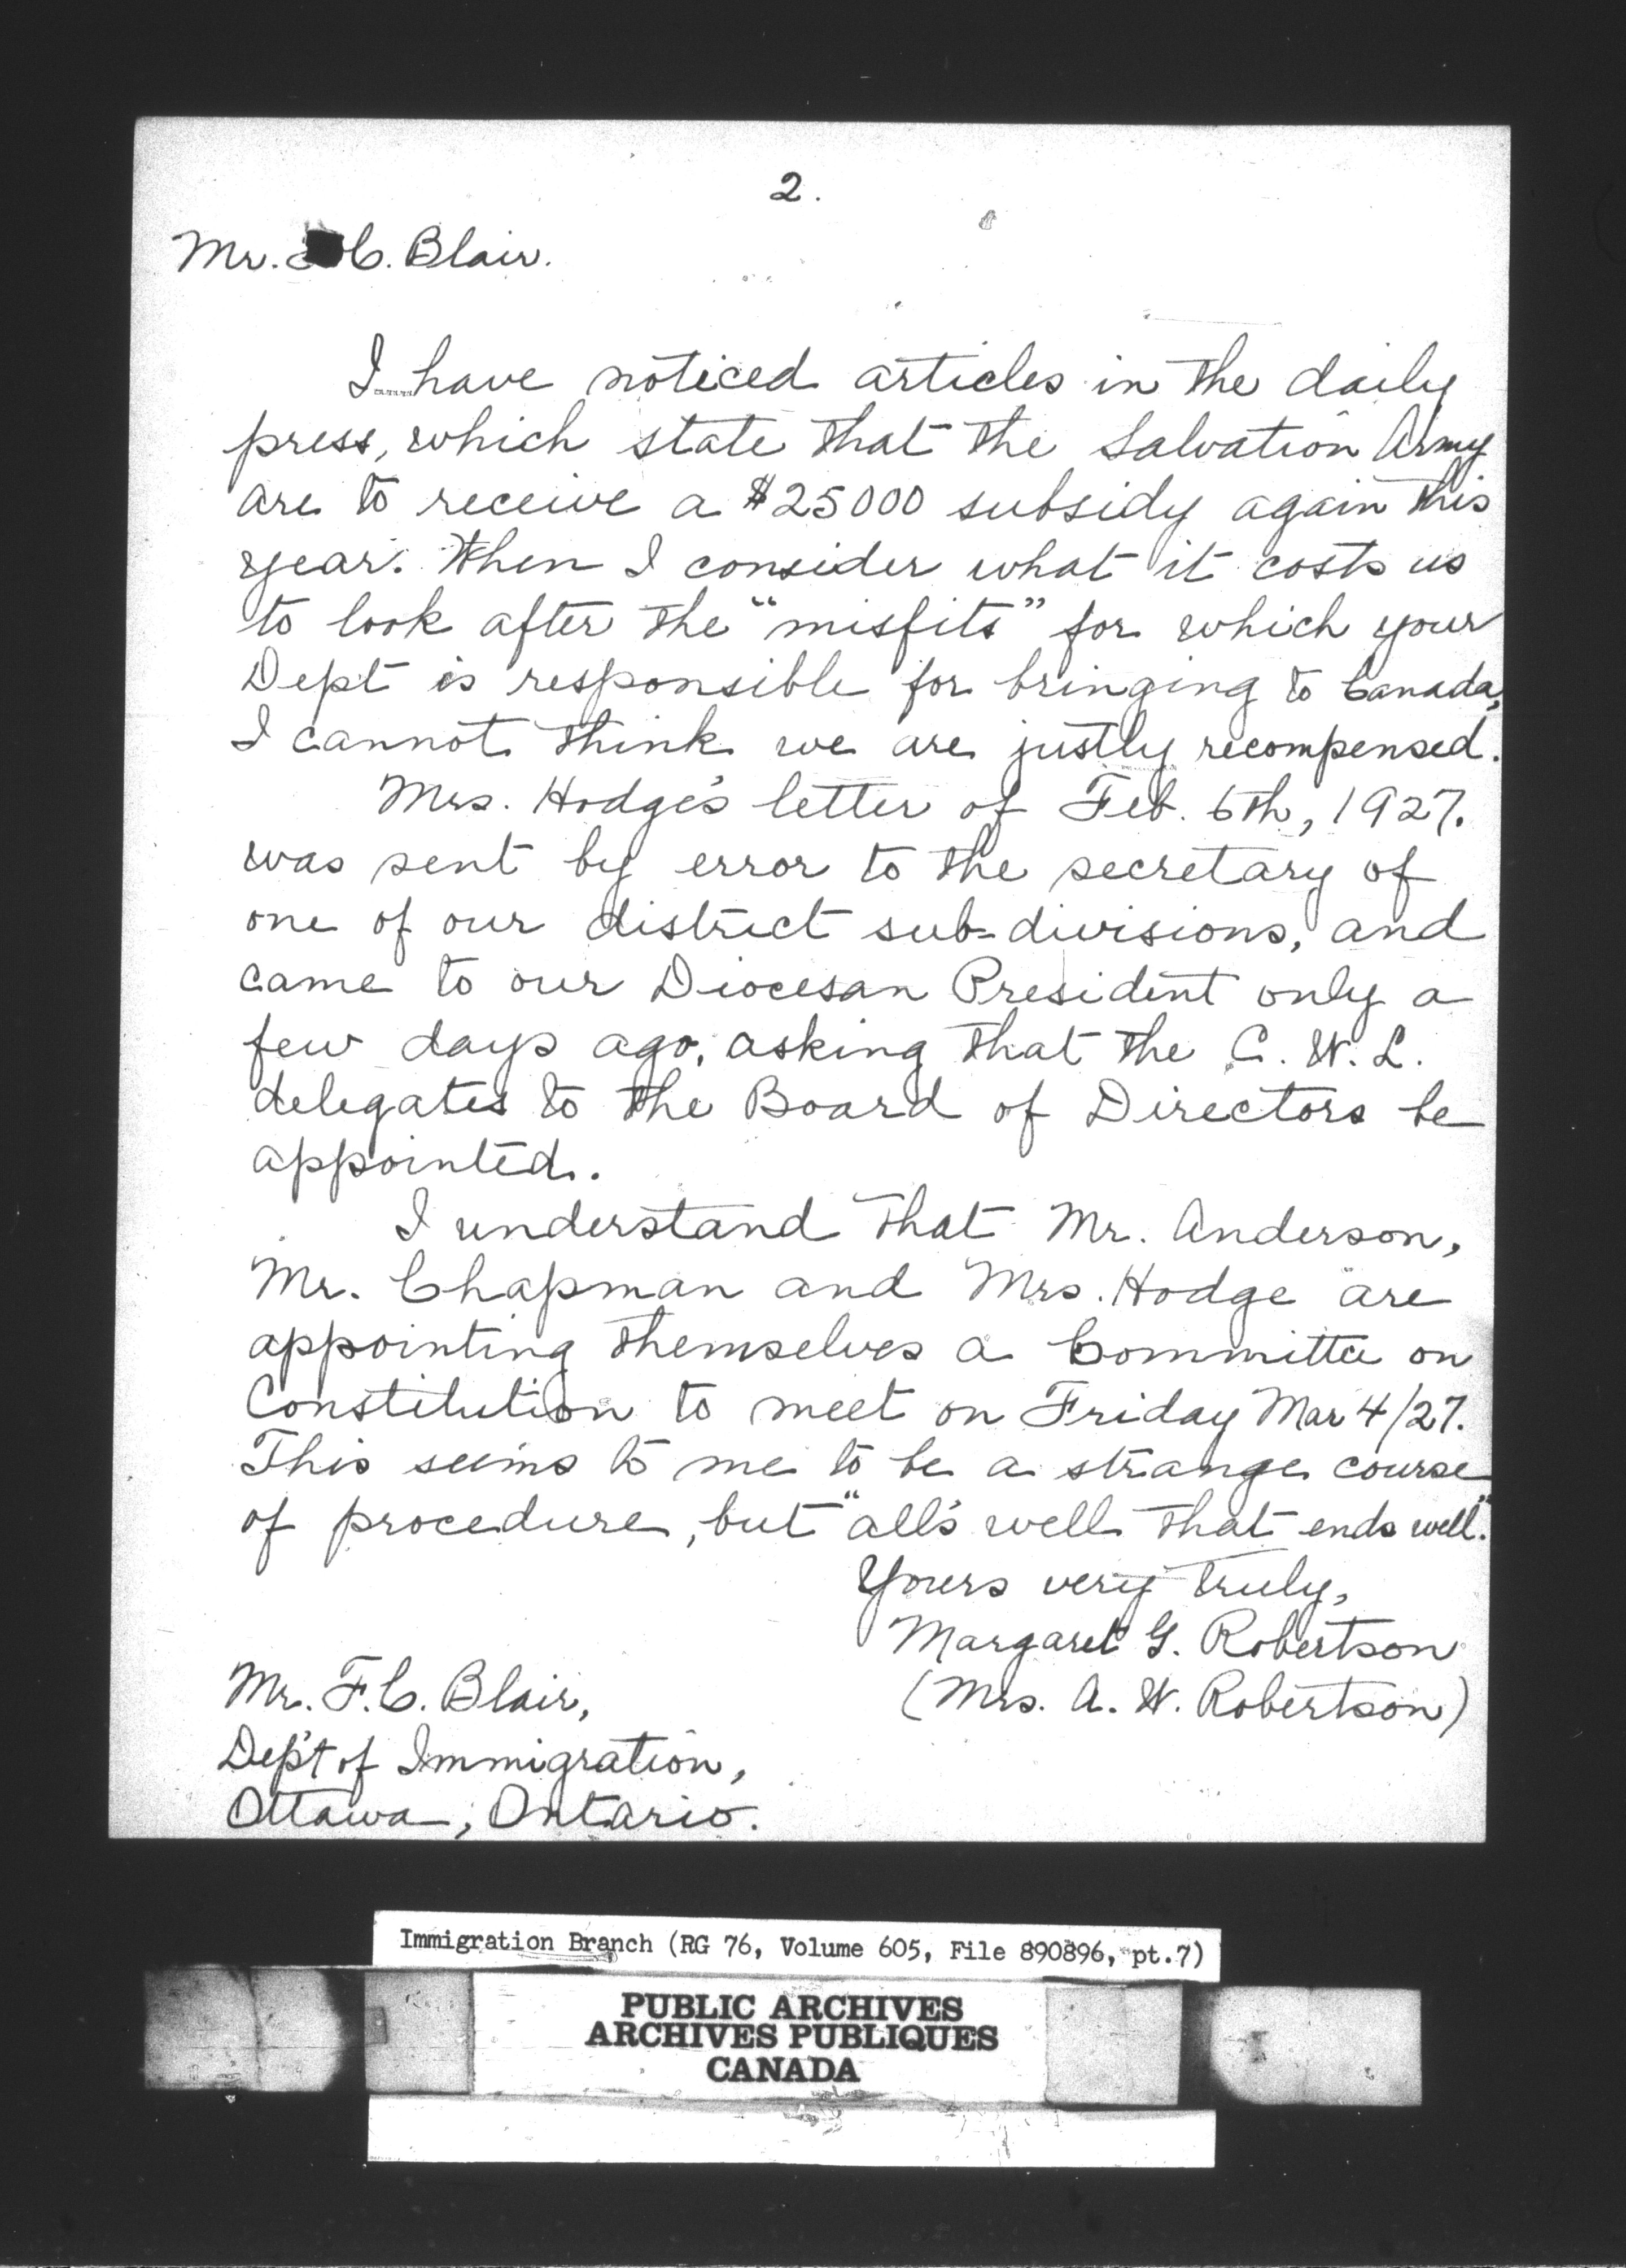 2.
Mr. C. Blair.
I have noticed articles in the daily
press, which state that the Salvation Army
are to receive a $25000 subsidy again this
year. When I consider what it costs us
to look after the "misfits" for which your
Dept is responsible for bringing to Canada,
I cannot think we are justly recompensed.
Mrs. Hodge's letter of Feb. 6th, 1927.
was sent by error to the secretary of
one of our district sub-divisions, and
came to our Diocesan President only a
few days ago, asking that the C. W. L.
delegates to the Board of Directors be
appointed.
I understand that Mr. Anderson,
Mr. Chapman and Mrs. Hodge are
appointing themselves a Committee on
Constitution to meet on Friday Mar 4/27.
This seems to me to be a strange course
of procedure, but "all's well that ends well."
Yours very truly,
Margaret G. Robertson
(Mrs. A. W. Robertson)
Mr. F. C. Blair,
Dep't of Immigration,
Ottawa, Ontario.
Immigration Branch (RG 76, Volume 605, File 890896, pt.7)
PUBLIC ARCHIVES
ARCHIVES PUBLIQUES
CANADA